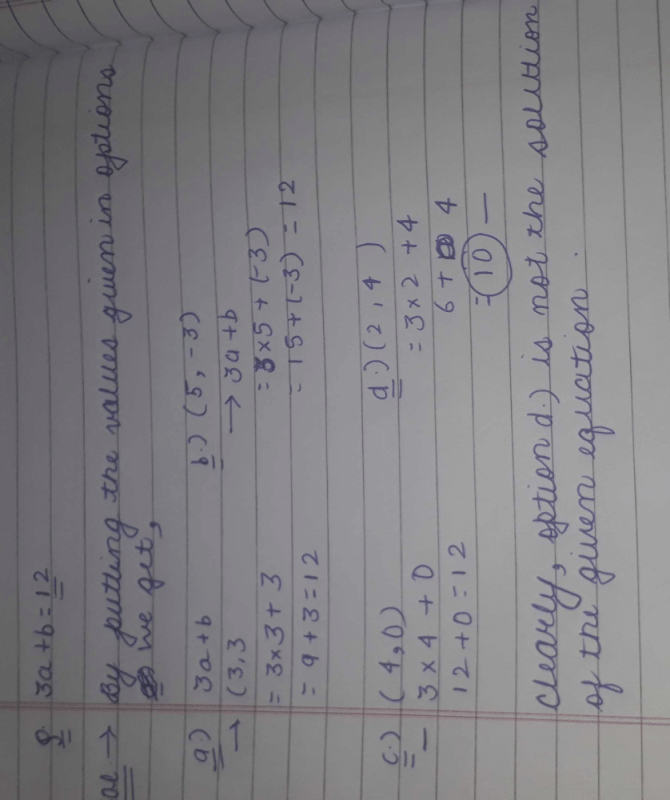 Q. 3a+b=12
→ By putting the values given in options
we get,
a) 3a+b
→ (3,3
= 3×3+3
= 9+3=12
b.) (5,-3)
→ 3a+b
= 3×5+(-3)
= 15+(-3) = 12
c.) (4,0)
3×4+0
12+0=12
d.) (2,4)
= 3×2+4
6+4
= 10
Clearly, option d.) is not the solution
of the given equation.